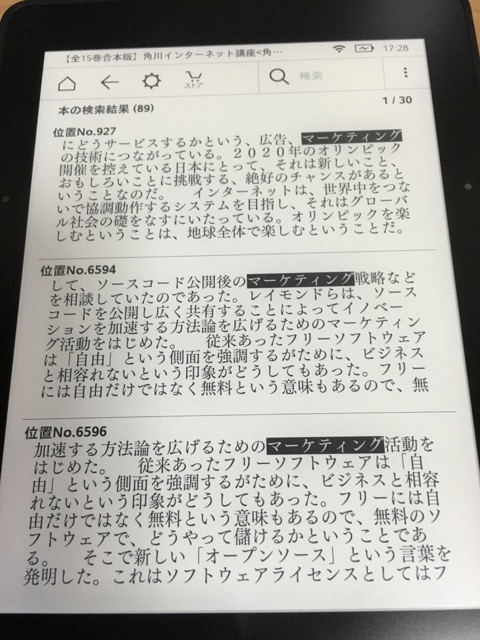 【全15巻合本版】角川インターネット講座<角…
17:28
ストア
検索
本の検索結果 (89)
1 / 30
位置No.927
にどうサービスするかという、広告、マーケティング
の技術につながっている。２０２０年のオリンピック
開催を控えている日本にとって、それは新しいこと、
おもしろいことに挑戦する、絶好のチャンスがあると
いうことなのだ。　インターネットは、世界中をつな
いで協調動作するシステムを目指し、それはグローバ
ル社会の礎をなすにいたっている。オリンピックを楽
しむということは、地球全体で楽しむということだ。
位置No.6594
して、ソースコード公開後のマーケティング戦略など
を相談していたのであった。レイモンドらは、ソース
コードを公開し広く共有することによってイノベー
ションを加速する方法論を広げるためのマーケティン
グ活動をはじめた。　従来あったフリーソフトウェア
は「自由」という側面を強調するがために、ビジネス
と相容れないという印象がどうしてもあった。フリー
には自由だけではなく無料という意味もあるので、無
位置No.6596
加速する方法論を広げるためのマーケティング活動を
はじめた。　従来あったフリーソフトウェアは「自
由」という側面を強調するがために、ビジネスと相容
れないという印象がどうしてもあった。フリーには自
由だけではなく無料という意味もあるので、無料のソ
フトウェアで、どうやって儲けるかということであ
る。　そこで新しい「オープンソース」という言葉を
発明した。これはソフトウェアライセンスとしてはフ